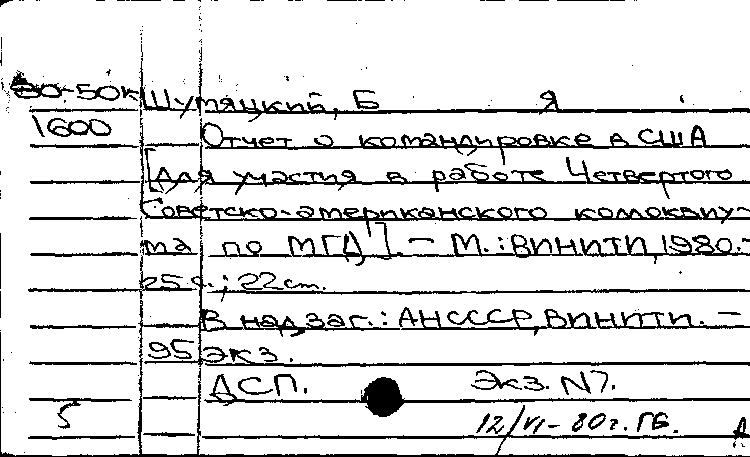 80-50к Шумяцкий, Б Я
1600 Отчет о командировке в США
[Для участия в работе Четвертого
Советско-американского коллоквиу-
ма по МГД]. - М.: ВИНИТИ, 1980.-
25 с.; 22 cm.
В надзаг.: АН СССР, ВИНИТИ. -
95 экз.
ДСП. Экз. N7.
5 12/VI-80г. ГБ. А